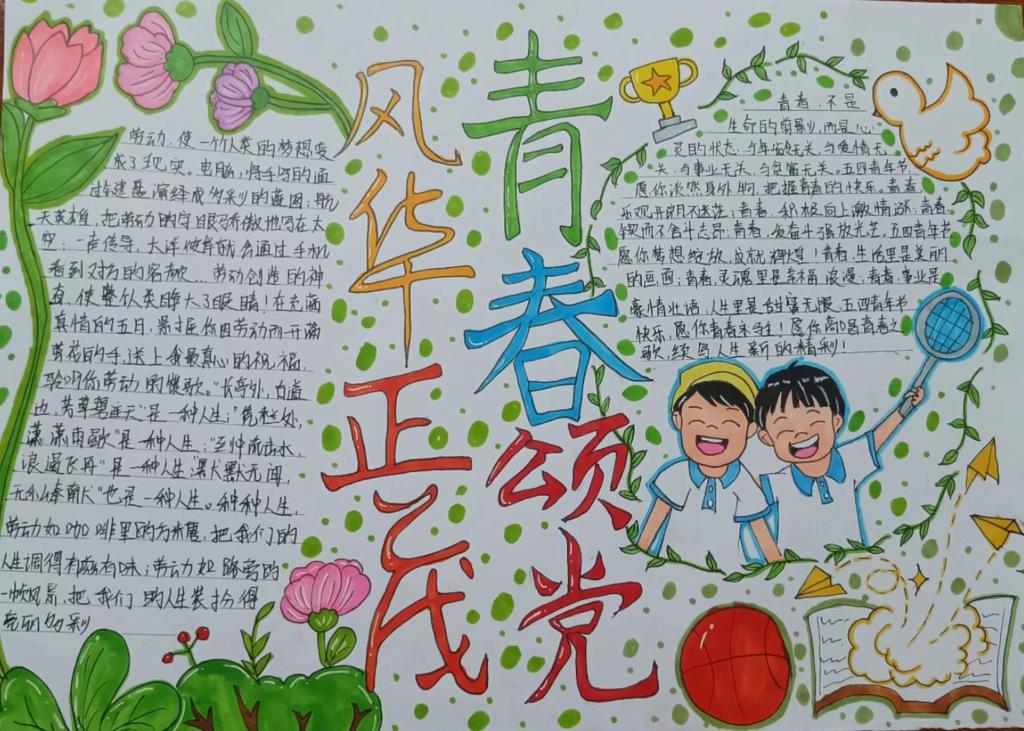 风华正茂
青春颂党
劳动，使一个人类的梦想变
成了现实。电脑，将手写的通
途演绎成多彩的蓝图；航
天英雄，把劳动的字眼骄傲地写在太
空；一声传导，大洋彼岸就会通过手机
看到对方的容颜……劳动创造的神
奇，使整个人类睁大了眼睛！在充满
真情的五月，紧握你因劳动而开满
茧花的手，送上我最真心的祝福，
聆听你劳动的赞歌。“长亭外，古道
边，芳草碧连天”是一种人生；“凭栏处，
潇潇雨歇”是一种人生；“到中流击水，
浪遏飞舟”是一种人生；“默默无闻，
无私奉献”也是一种人生。种种人生，
劳动如咖啡里的方糖，把我们的
人生调得有滋有味；劳动如路旁的
一帧风景，把我们的人生装扮得
亮丽多彩
青春，不是
生命的剪影，而是心
灵的状态，与年龄无关，与爱情无
关，与事业无关，与贫富无关。五四青年节，
愿你淡然身外物，把握青春的快乐。青春，
乐观开朗不迷茫；青春，积极向上激情涨；青春，
锲而不舍斗志昂；青春，发奋斗强放光芒，五四青年节
愿你梦想绽放，成就辉煌！青春，生活里是美丽
的画面；青春，灵魂里是幸福浪漫；青春，事业是
豪情壮语，人生里是甜蜜无限，五四青年节
快乐，愿你青春永驻！愿你高唱青春之
歌，续写人生新的精彩！